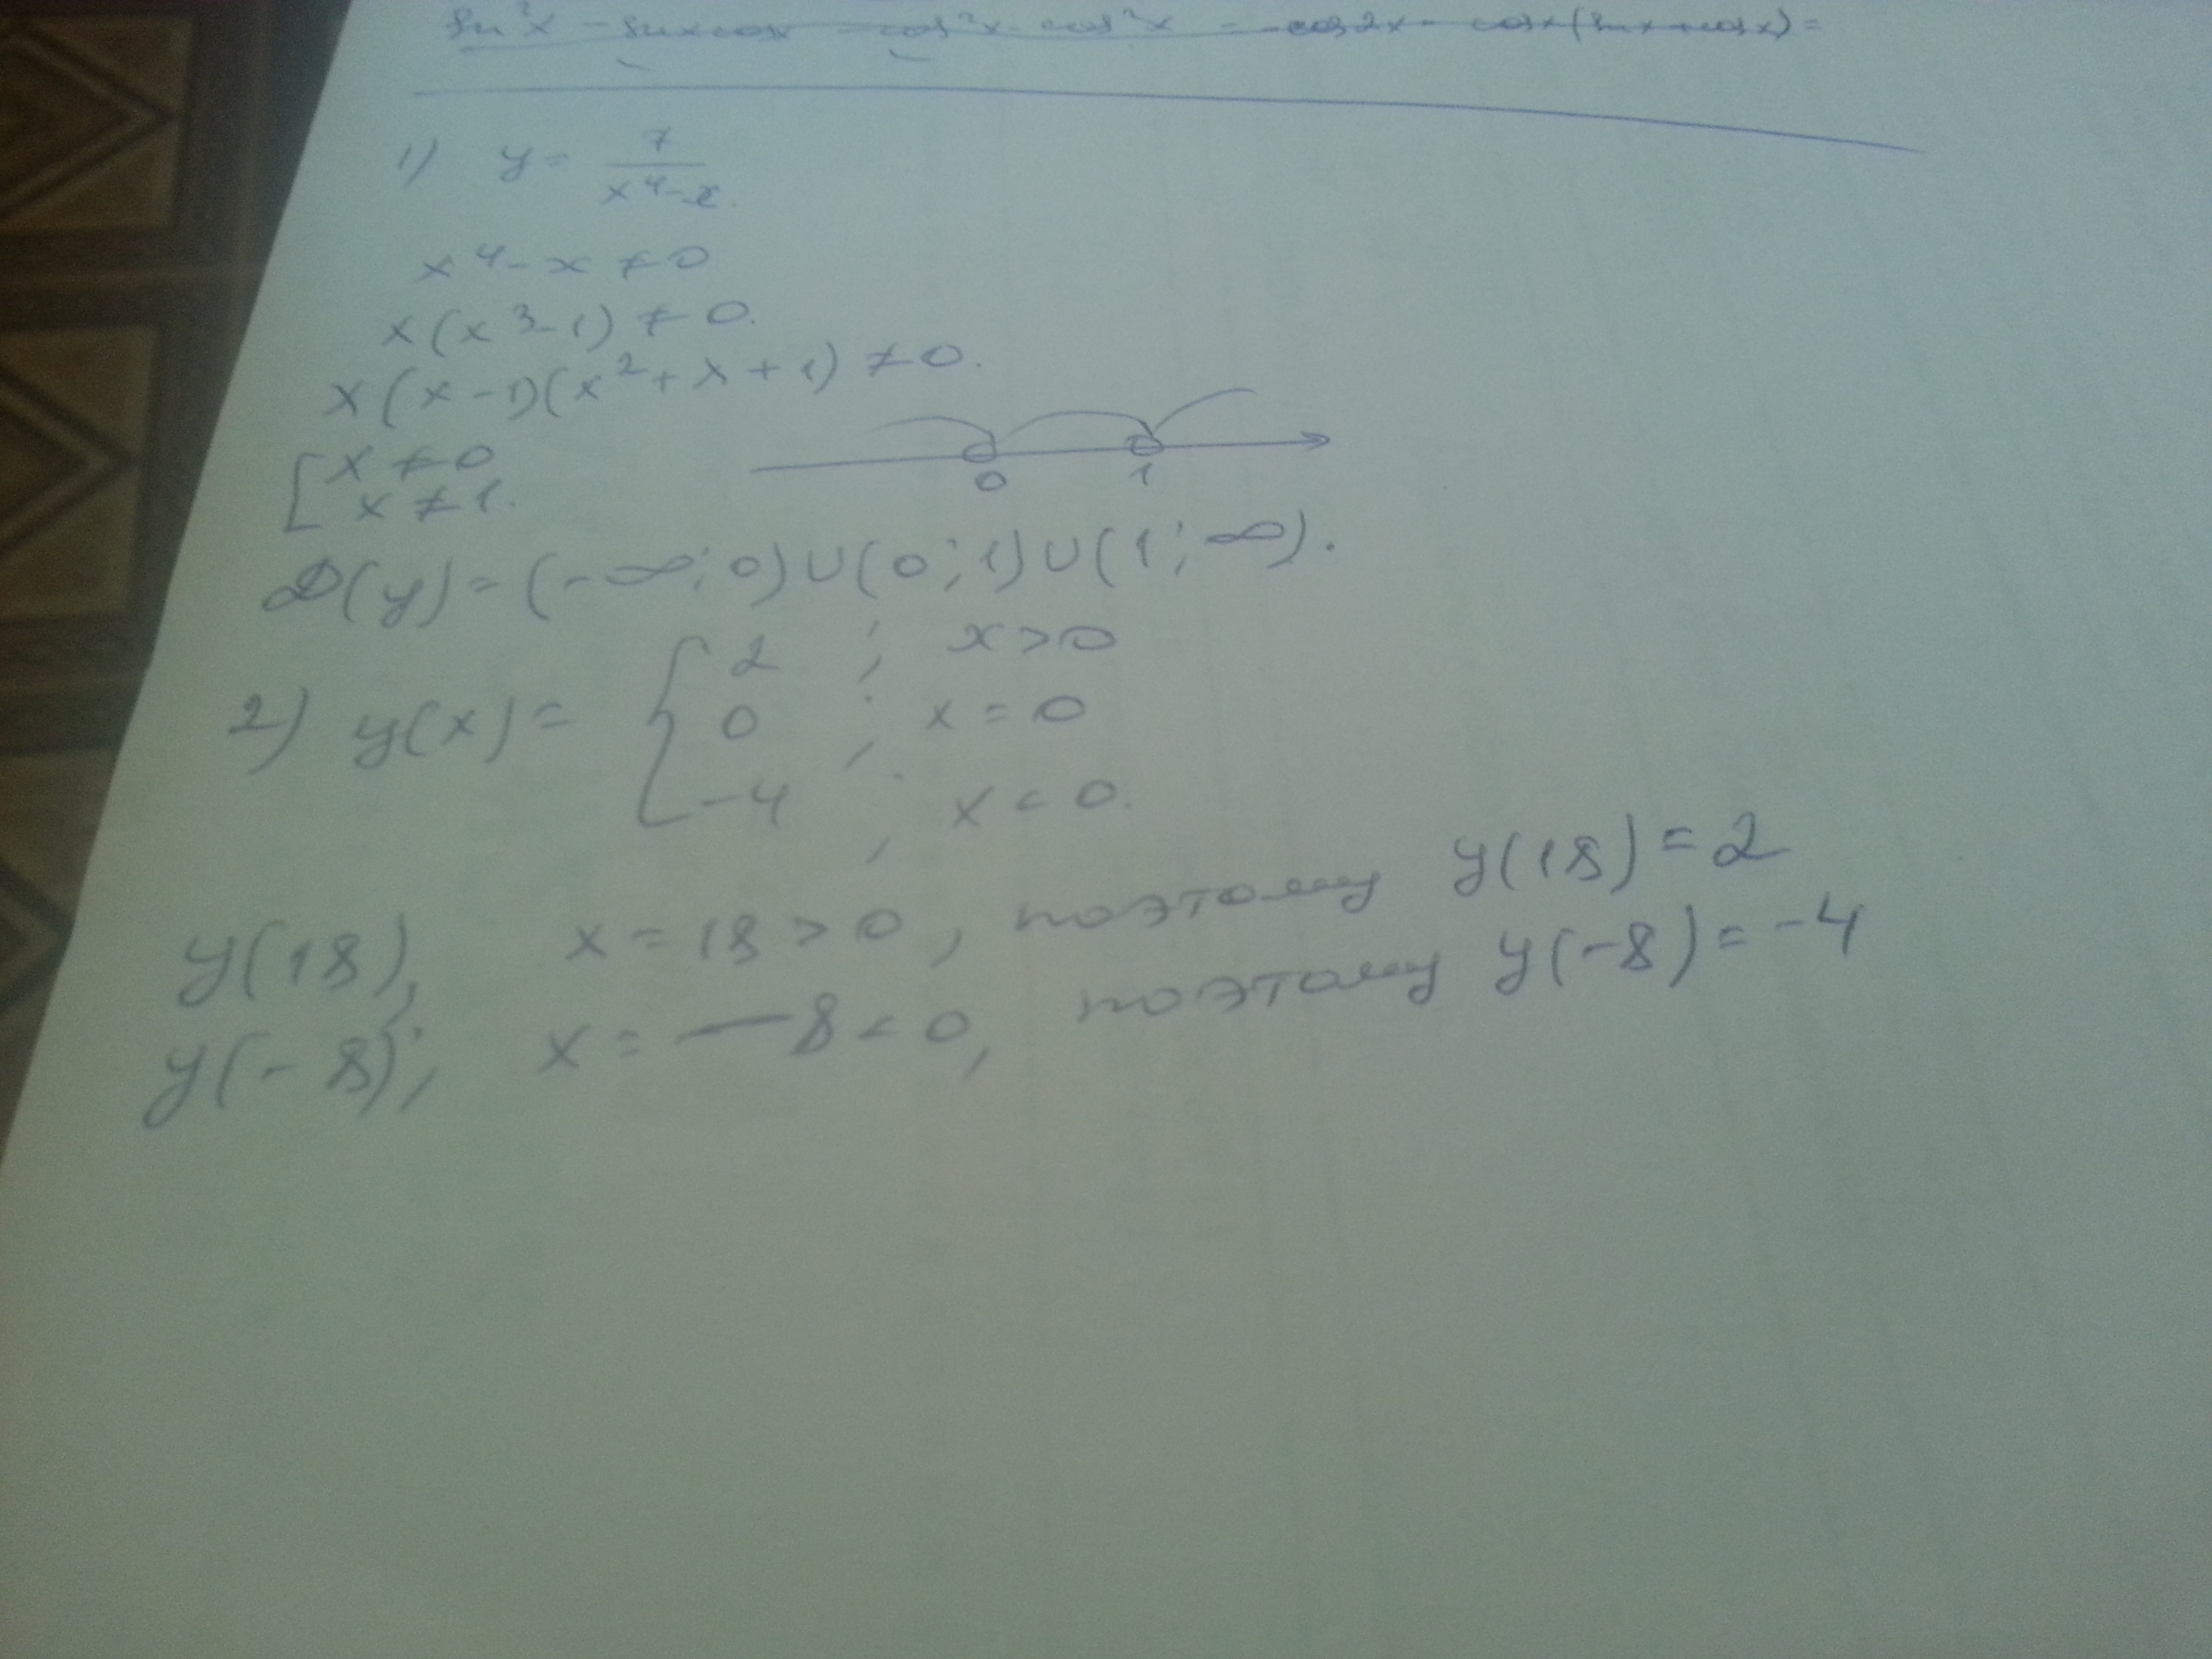 sin²x - sinxcosx - cos²x - cos²x = -cos2x - cosx(sinx+cosx) =
1) y = 7/(x⁴-x).
x⁴-x ≠ 0
x(x³-1) ≠ 0.
x(x-1)(x²+x+1) ≠ 0.
[x ≠ 0
x ≠ 1.
0 1
D(y) = (-∞; 0)∪(0; 1)∪(1; ∞).
2) y(x) = { 2 ; x>0
0 ; x = 0
-4 ; x < 0.
y(18), x = 18 > 0, поэтому y(18) = 2
y(-8); x = -8 < 0, поэтому y(-8) = -4